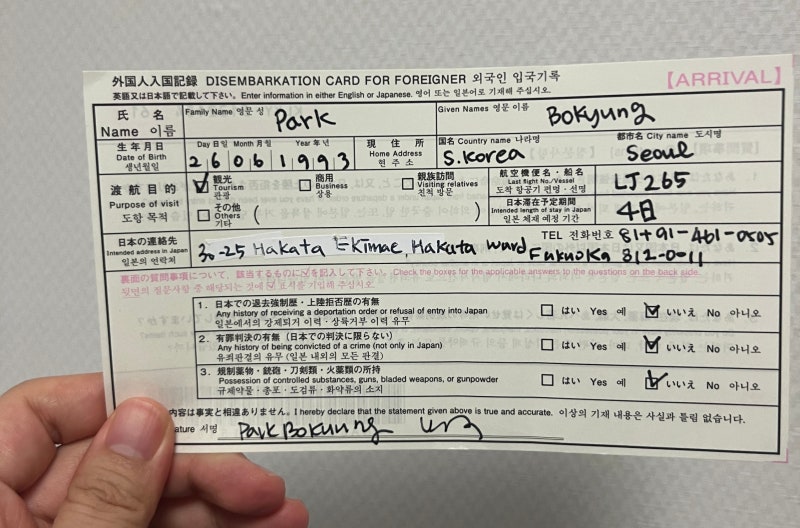 外国人入国記録 DISEMBARKATION CARD FOR FOREIGNER 외국인 입국기록
【ARRIVAL】
英語又は日本語で記載して下さい。Enter information in either English or Japanese. 영어 또는 일본어로 기재해 주십시오.
氏 名 Name 이름
Family Name 영문 성 Park
Given Names 영문 이름 Bokyung
生年月日 Date of Birth 생년월일
Day 日 일 Month 月 월 Year 年 년
26061993
現住所 Home Address 현 주 소
国名 Country name 나라명 S.Korea
都市名 City name 도시명 Seoul
渡航目的 Purpose of visit 도항 목적
☑ 観光 Tourism 관광
☐ 商用 Business 상용
☐ 親族訪問 Visiting relatives 친척 방문
☐ その他 Others 기타 ( )
航空機便名・船名 Last flight No./Vessel 도착 항공기 편명・선명 LJ265
日本滞在予定期間 Intended length of stay in Japan 일본 체재 예정 기간 4日
日本の連絡先 Intended address in Japan 일본의 연락처
TEL 전화번호 81+91-461-0505
30-25 Hakata Ekimae, Hakata ward Fukuoka 812-0-11
裏面の質問事項について、該当するものに✓を記入して下さい。Check the boxes for the applicable answers to the questions on the back side.
뒷면의 질문사항 중 해당되는 것에 ✓ 표시를 기입해 주십시오.
1. 日本での退去強制歴・上陸拒否歴の有無
Any history of receiving a deportation order or refusal of entry into Japan
일본에서의 강제퇴거 이력・상륙거부 이력 유무
☐ はい Yes 예 ☑ いいえ No 아니오
2. 有罪判決の有無（日本での判決に限らない）
Any history of being convicted of a crime (not only in Japan)
유죄판결의 유무 (일본 내외의 모든 판결)
☐ はい Yes 예 ☑ いいえ No 아니오
3. 規制薬物・銃砲・刀剣類・火薬類の所持
Possession of controlled substances, guns, bladed weapons, or gunpowder
규제약물・총포・도검류・화약류의 소지
☐ はい Yes 예 ☑ いいえ No 아니오
内容は事実と相違ありません。I hereby declare that the statement given above is true and accurate. 이상의 기재 내용은 사실과 틀림 없습니다.
ature 서명 Park Bokyung